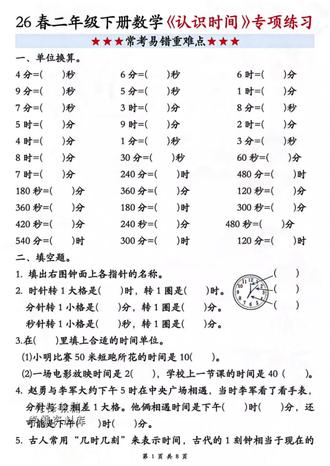 26春二年级下册数学《认识时间》专项练习
★★★常考易错重难点★★★
一、单位换算。
4分=( )秒 6分=( )秒 6时=( )分
9分=( )秒 5分=( )秒 1时=( )分
7分=( )秒 3时=( )分 8时=( )分
5时=( )分 9时=( )分 2时=( )分
4时=( )分 1分=( )秒 3分=( )秒
8时=( )分 30分=( )秒 60秒=( )分
7时=( )分 240分=( )时 480分=( )时
180秒=( )分 360分=( )时 120秒=( )分
360秒=( )分 180分=( )时 300秒=( )分
420秒=( )分 240秒=( )分 480秒=( )分
540分=( )时 300分=( )时 120分=( )时
二、填空题。
1. 填出右图钟面上各指针的名称。
2. 时针转1大格是( )时，转1圈是( )时。
分针转1小格是( )分，转1圈是( )分。
秒针转1小格是( )秒，转1圈是( )秒。
3.在( )里填上合适的时间单位。
(1)小明比赛50米短跑所花的时间是10( )。
(2)一场电影放映时间是2( )，学校上一节课的时间是40( )。
4. 赵勇与李军大约下午5时在中央广场相遇，当时李军看了看手表，
分针与12相差1大格。他俩相遇时间是下午( )时( )分，还
可能是下午( )时( )分。
5. 古人常用“几时几刻”来表示时间，古代的1刻钟相当于现在的
第 1 页 共 8 页